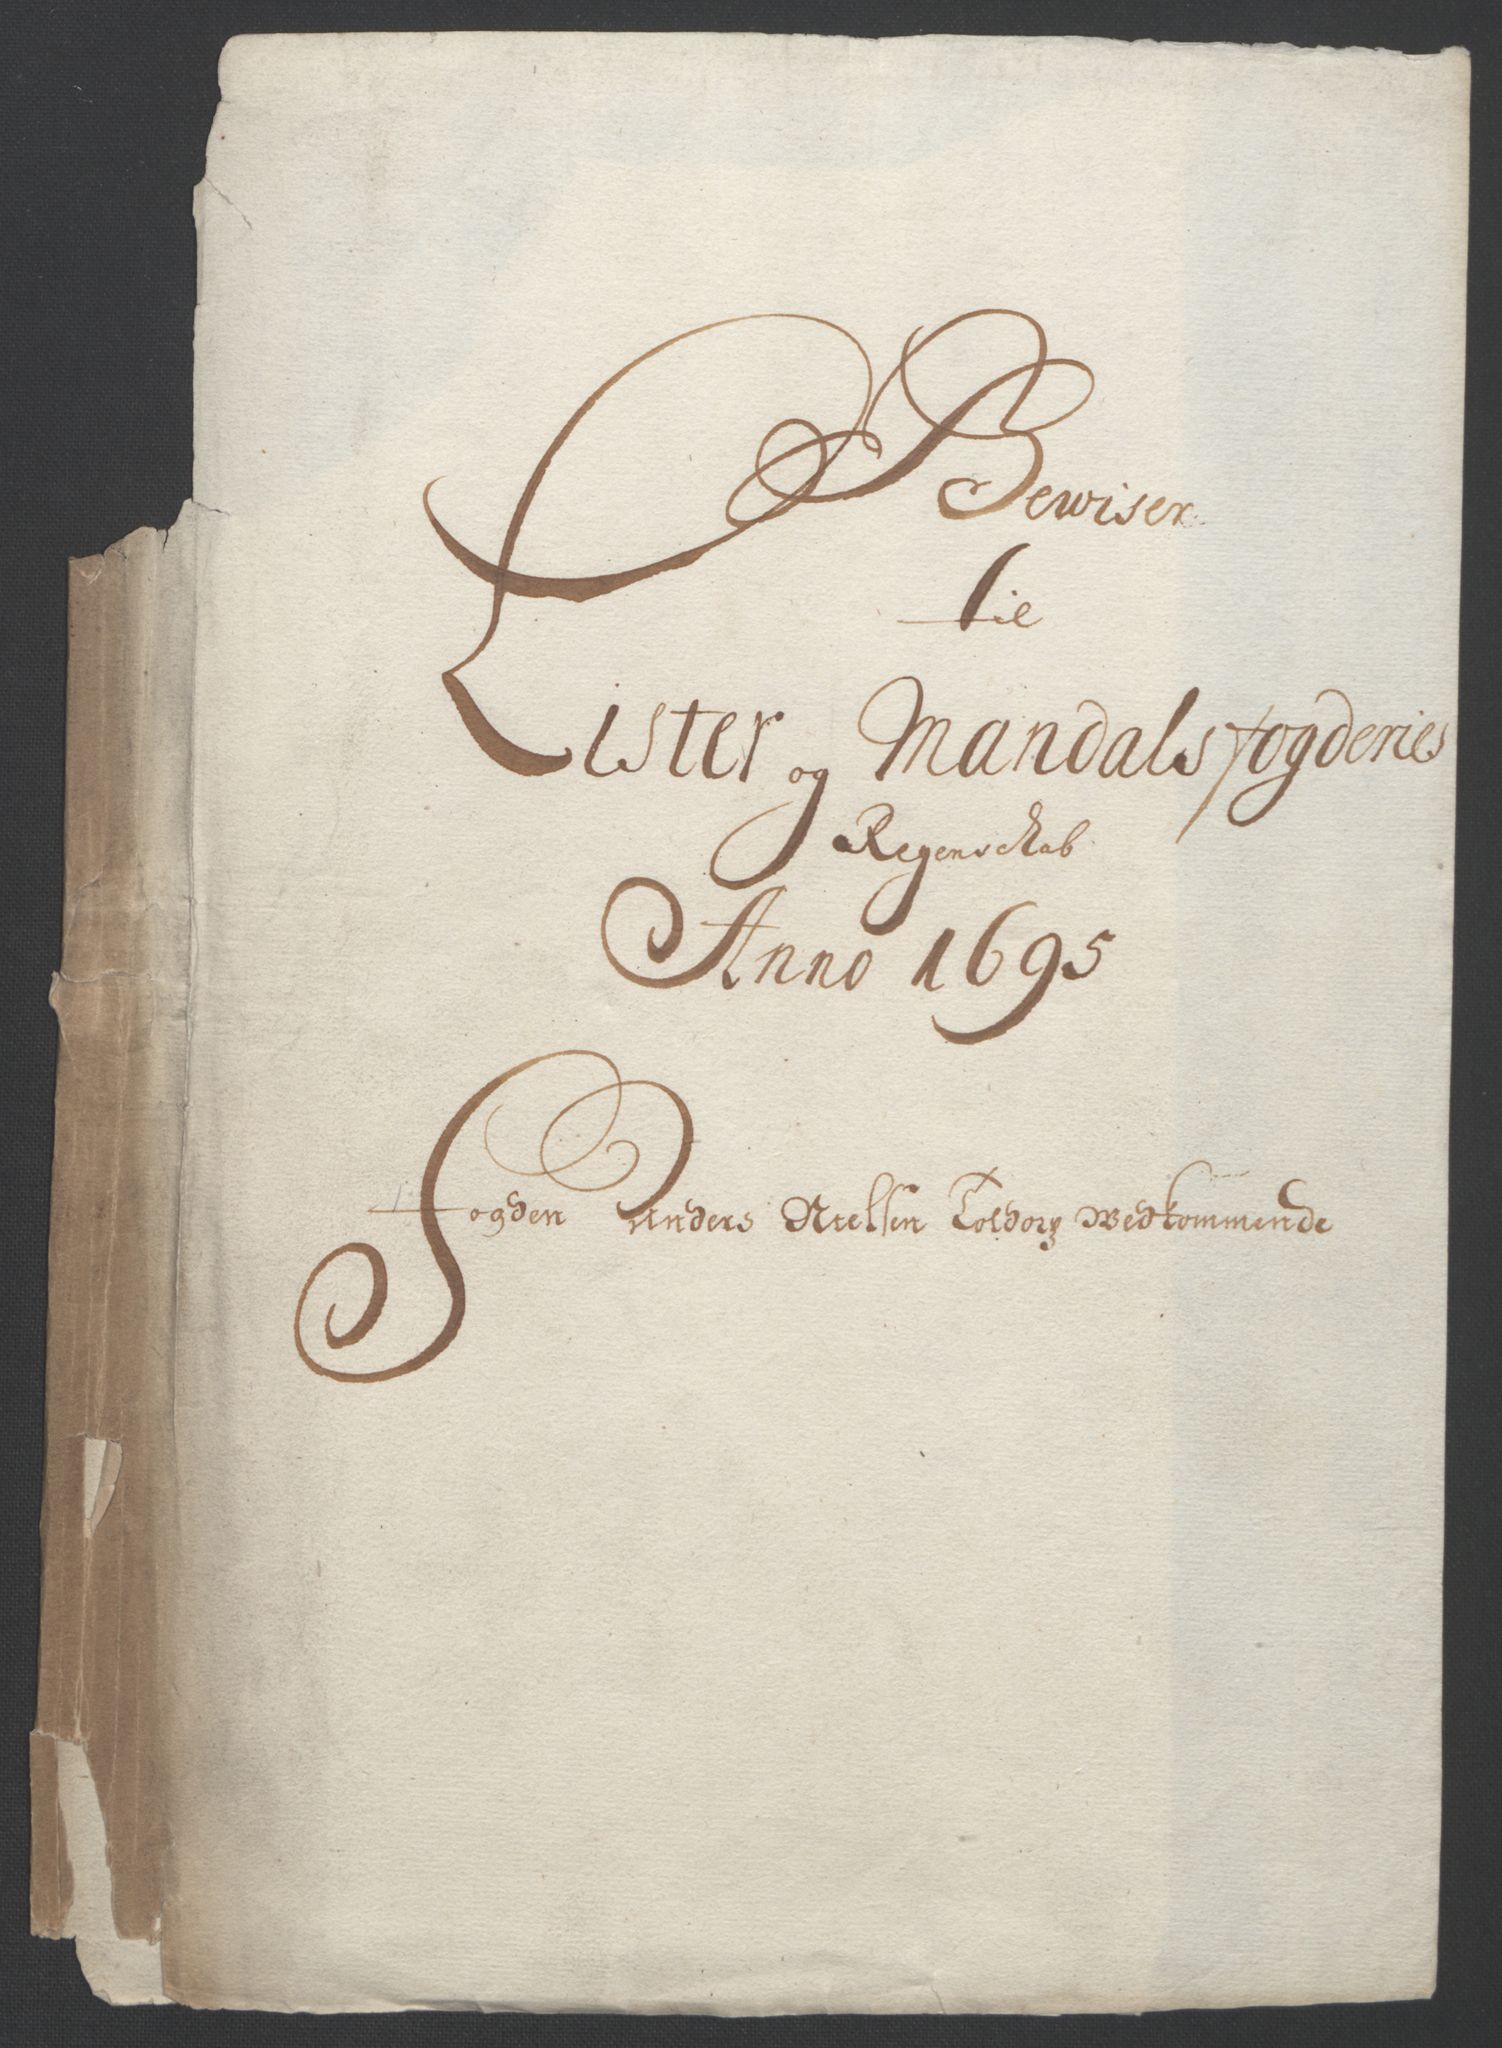 Bewiser
til
Lister og Mandals fogderies
Regenschab
Anno 1695
Fogden Anders Nielsen Toldorg Wedkommende